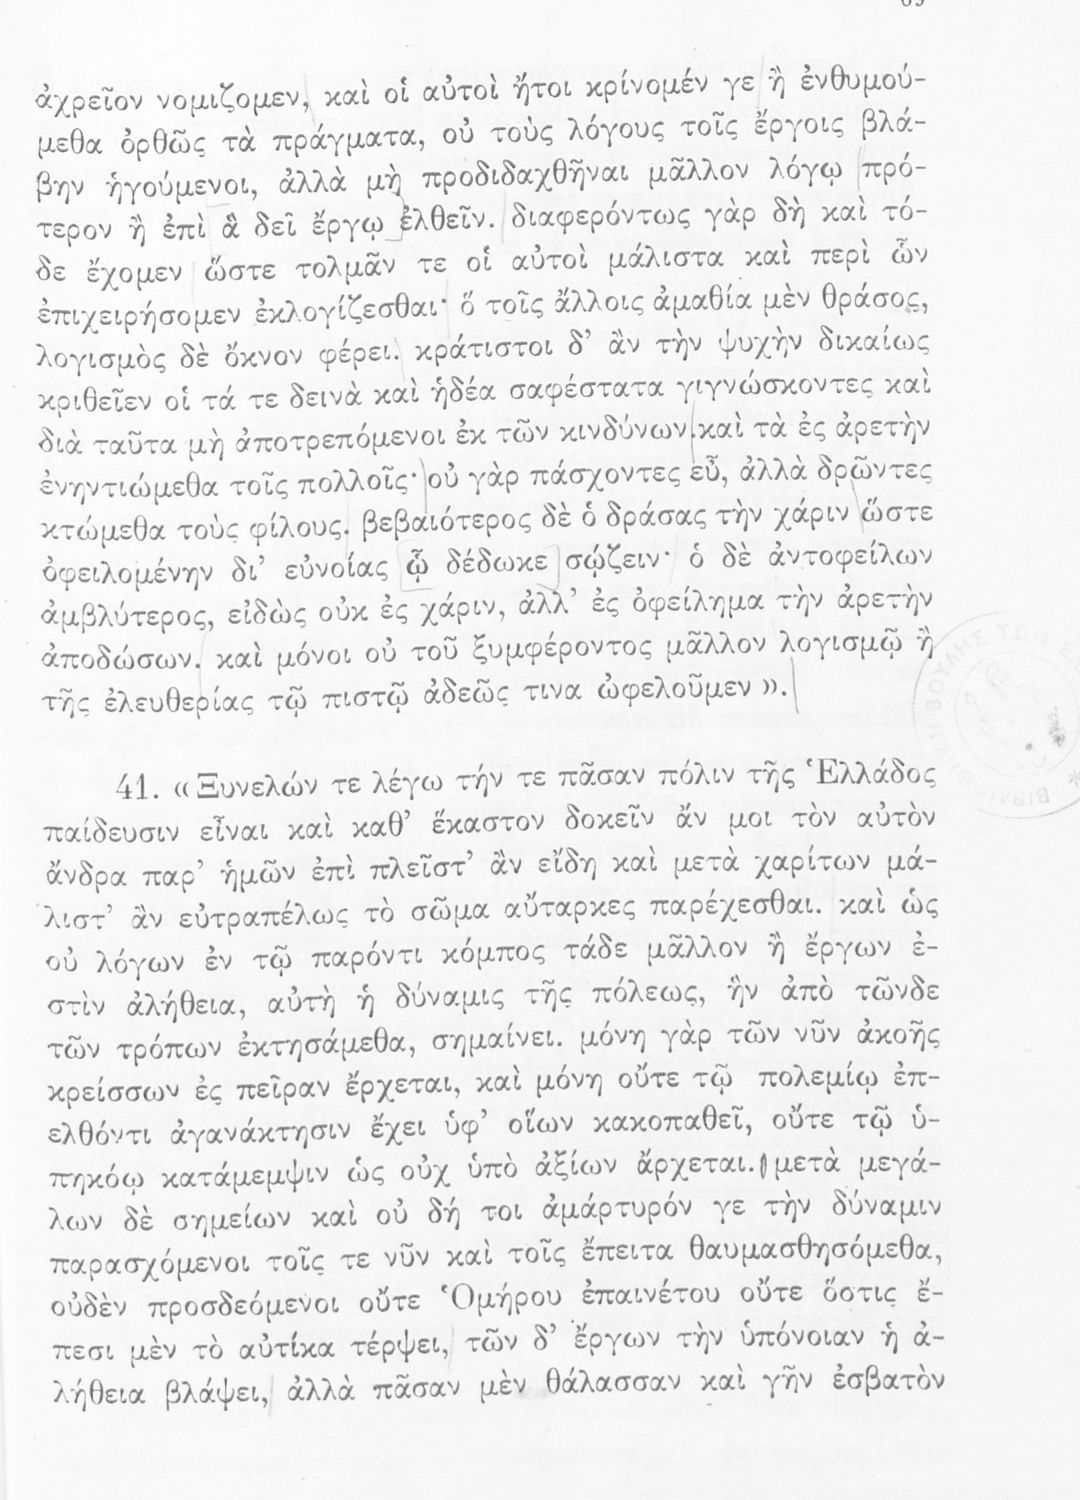 ἀχρεῖον νομιζομεν, καὶ οἱ αὐτοὶ ἤτοι κρίνομέν γε ἢ ἐνθυμού-
μεθα ὀρθῶς τὰ πράγματα, οὐ τοὺς λόγους τοῖς ἔργοις βλά-
βην ἡγούμενοι, ἀλλὰ μὴ προδιδαχθῆναι μᾶλλον λόγῳ πρό-
τερον ἢ ἐπὶ ἃ δεῖ ἔργῳ ἐλθεῖν. διαφερόντως γὰρ δὴ καὶ τό-
δε ἔχομεν ὥστε τολμᾶν τε οἱ αὐτοὶ μάλιστα καὶ περὶ ὧν
ἐπιχειρήσομεν ἐκλογίζεσθαι· ὅ τοῖς ἄλλοις ἀμαθία μὲν θράσος,
λογισμὸς δὲ ὄκνον φέρει. κράτιστοι δ' ἂν τὴν ψυχὴν δικαίως
κριθεῖεν οἱ τά τε δεινὰ καὶ ἡδέα σαφέστατα γιγνώσκοντες καὶ
διὰ ταῦτα μὴ ἀποτρεπόμενοι ἐκ τῶν κινδύνων. καὶ τὰ ἐς ἀρετὴν
ἐνηντιώμεθα τοῖς πολλοῖς· οὐ γὰρ πάσχοντες εὖ, ἀλλὰ δρῶντες
κτώμεθα τοὺς φίλους. βεβαιότερος δὲ ὁ δράσας τὴν χάριν ὥστε
ὀφειλομένην δι' εὐνοίας ᾧ δέδωκε σῴζειν· ὁ δὲ ἀντοφείλων
ἀμβλύτερος, εἰδὼς οὐκ ἐς χάριν, ἀλλ' ἐς ὀφείλημα τὴν ἀρετὴν
ἀποδώσων. καὶ μόνοι οὐ τοῦ ξυμφέροντος μᾶλλον λογισμῷ ἢ
τῆς ἐλευθερίας τῷ πιστῷ ἀδεῶς τινα ὠφελοῦμεν».
41. «Ξυνελών τε λέγω τήν τε πᾶσαν πόλιν τῆς Ἑλλάδος
παίδευσιν εἶναι καὶ καθ' ἕκαστον δοκεῖν ἄν μοι τὸν αὐτὸν
ἄνδρα παρ' ἡμῶν ἐπὶ πλεῖστ' ἂν εἴδη καὶ μετὰ χαρίτων μά-
λιστ' ἂν εὐτραπέλως τὸ σῶμα αὔταρκες παρέχεσθαι. καὶ ὡς
οὐ λόγων ἐν τῷ παρόντι κόμπος τάδε μᾶλλον ἢ ἔργων ἐ-
στὶν ἀλήθεια, αὐτὴ ἡ δύναμις τῆς πόλεως, ἣν ἀπὸ τῶνδε
τῶν τρόπων ἐκτησάμεθα, σημαίνει. μόνη γὰρ τῶν νῦν ἀκοῆς
κρείσσων ἐς πεῖραν ἔρχεται, καὶ μόνη οὔτε τῷ πολεμίῳ ἐπ-
ελθόντι ἀγανάκτησιν ἔχει ὑφ' οἵων κακοπαθεῖ, οὔτε τῷ ὑ-
πηκόῳ κατάμεμψιν ὡς οὐχ ὑπὸ ἀξίων ἄρχεται. μετὰ μεγά-
λων δὲ σημείων καὶ οὐ δή τοι ἀμάρτυρόν γε τὴν δύναμιν
παρασχόμενοι τοῖς τε νῦν καὶ τοῖς ἔπειτα θαυμασθησόμεθα,
οὐδὲν προσδεόμενοι οὔτε Ὁμήρου ἐπαινέτου οὔτε ὅστις ἔ-
πεσι μὲν τὸ αὐτίκα τέρψει, τῶν δ' ἔργων τὴν ὑπόνοιαν ἡ ἀ-
λήθεια βλάψει, ἀλλὰ πᾶσαν μὲν θάλασσαν καὶ γῆν ἐσβατὸν